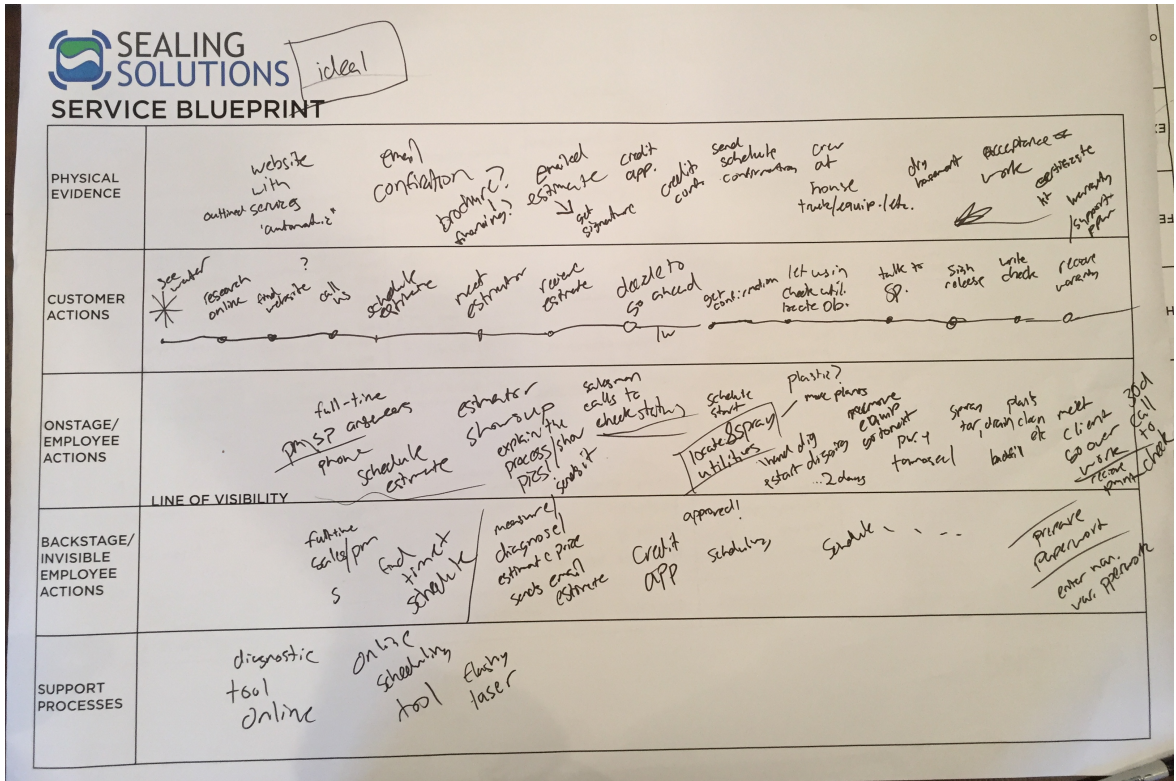 SEALING
SOLUTIONS
ideal
SERVICE BLUEPRINT
PHYSICAL
EVIDENCE
website
with
outlined services
email
confiration
brochure?
financing?
emailed
estimate
get
signature
credit
app.
credit
cards
send
schedule
confirmation
crew
at
house
truck/equip./etc.
dry
basement
acceptance of
work
certificate
warranty
/support
CUSTOMER
ACTIONS
see
water
research
online
find
website
?
call
us
schedule
estimate
meet
estimator
receive
estimate
decide to
go ahead
1w
get confirmation
let us in
check util.
locate Ob.
talk to
SP.
sign
release
write
check
receive
warranty
ONSTAGE/
EMPLOYEE
ACTIONS
full-time
pm/SP answers
phone
schedule
estimate
estimator
shows up
explain the
process/show
sends it
salesman
calls to
check status
schedule
start
locate & spray
utilities
plastic?
more plants
hand dig
start digging
...2 days
remove
equip
go to next
put y
spray
tar, drain clean
plants
etc
backfill
meet
client
go over
work
recieve
30d
call
to
check
LINE OF VISIBILITY
BACKSTAGE/
INVISIBLE
EMPLOYEE
ACTIONS
full-time
sales/pm
s
find
time +
schedule
measure/
diagnose/
estimate price
sends email
estimate
credit
app
approved!
scheduling
schedule . . ...
prepare
paperwork
enter
SUPPORT
PROCESSES
diagnostic
tool
online
online
scheduling
tool
flashy
laser